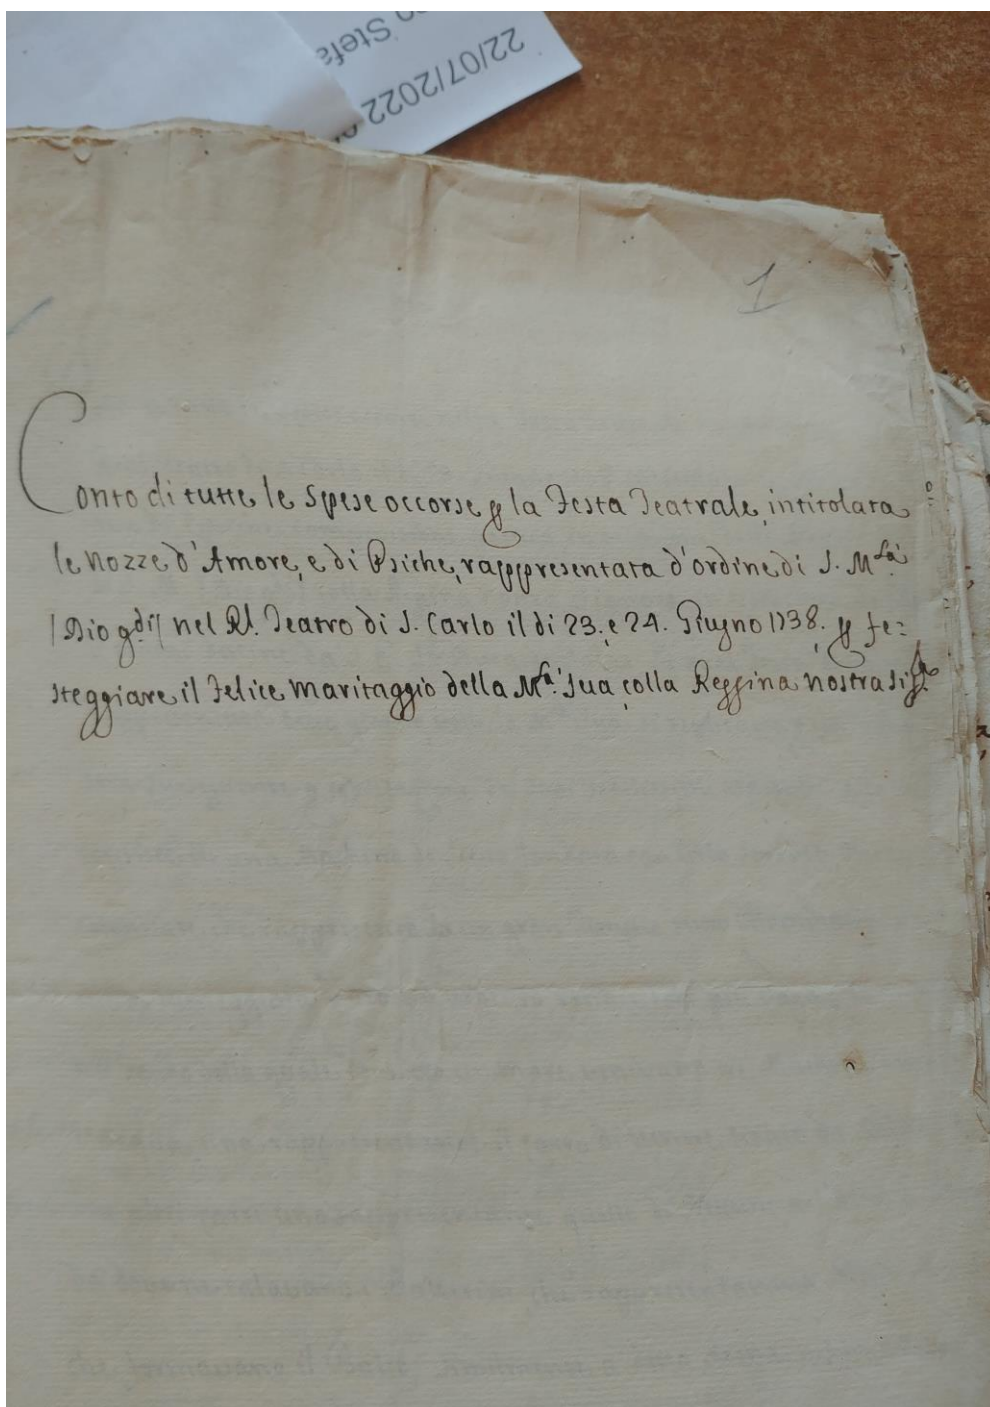 22/07/2022
o Stefa
1
Conto di tutte le Spese occorse p la Festa Teatrale, intitolata
le Nozze d'Amore, e di Psiche, rappresentata d'ordine di S. M.tà
|Dio g.di| nel Rl. Teatro di S. Carlo il di 23. e 24. Giugno 1738. p fe=
steggiare il Felice maritaggio della M.a Sua colla Reggina nostra Sig.ra